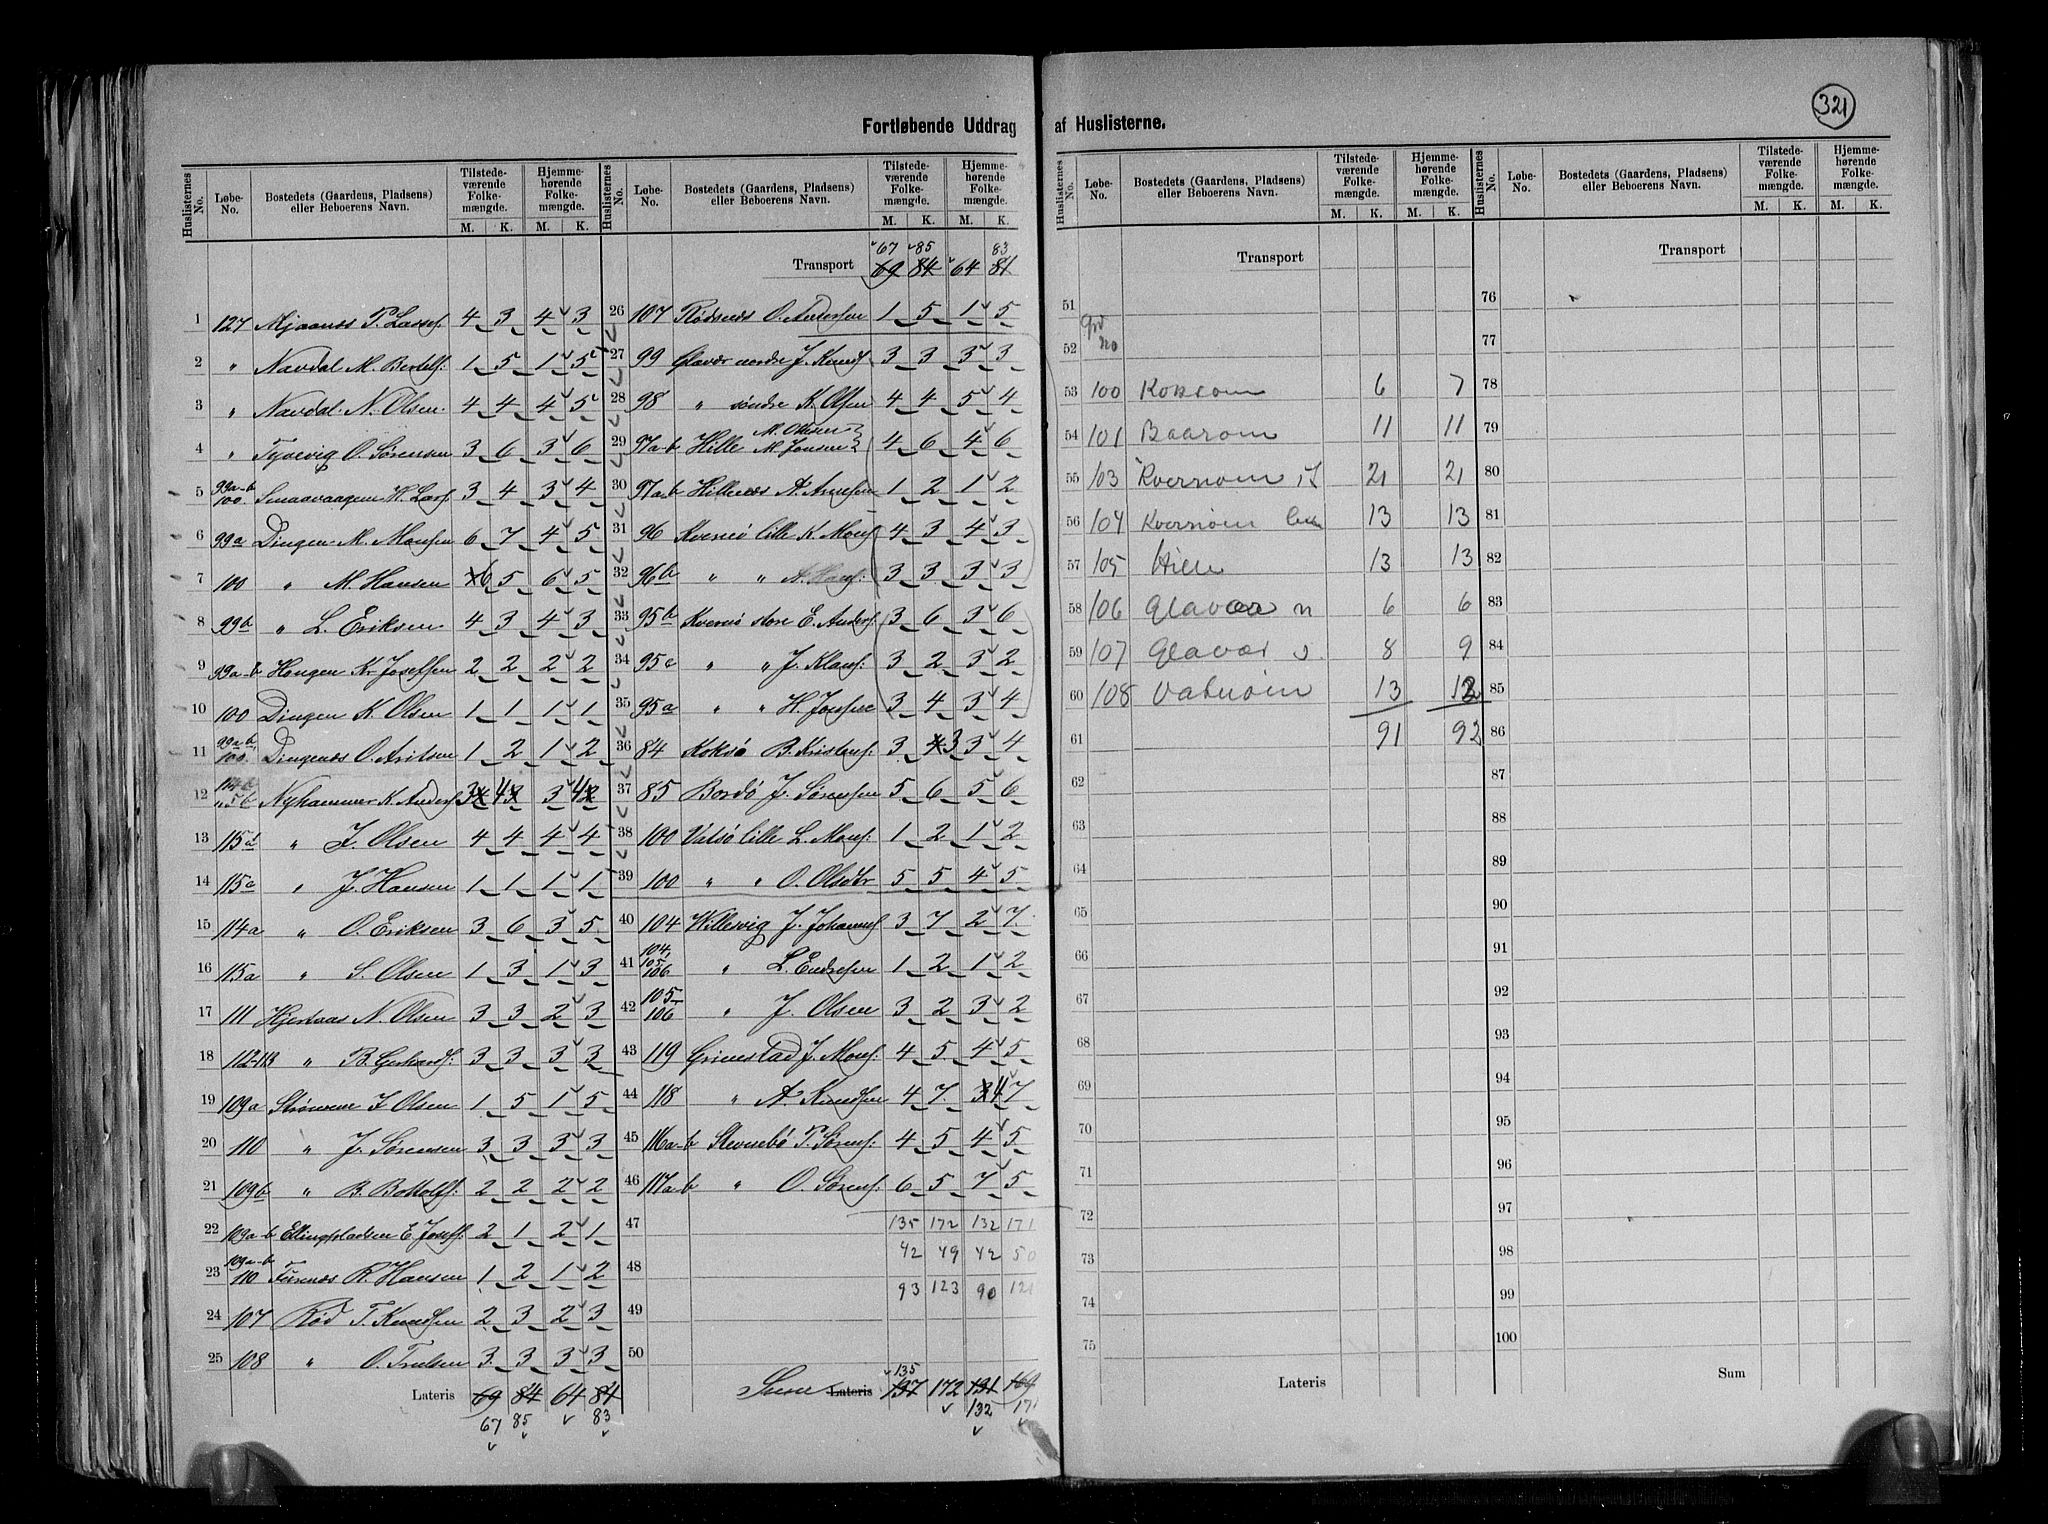 321
Fortløbende Uddrag af Huslisterne.
Huslisternes No. Løbe-No. Bostedets (Gaardens, Pladsens) eller Beboerens Navn. Tilstedeværende Folkemængde. M. K. Hjemmehørende Folkemængde. M. K.
1 127 Mjaanes P. Lassef. 4 3 4 3
2 " Navdal M. Bertelf. 1 5 1 5
3 " Navdal N. Olsen 4 4 4 5
4 " Tjuevig O. Sørensen 3 6 3 6
5 99a-b 100 Smaavaagen H. Larf. 3 4 3 4
6 99a Dingen M. Monsen 6 7 4 5
7 100 " M. Hansen 6 5 6 5
8 99b " L. Eriksen 4 3 4 3
9 99a-b Haugen Kr Josefsen 2 2 2 2
10 100 Dingen K. Olsen 1 1 1 1
11 99a-b 100 Dingenæs O. Aritsen 1 2 1 2
12 Nyhammer K. Andersf. 3 4 3 4
13 115b " J. Olsen 4 4 4 4
14 115c " J. Hansen 1 1 1 1
15 114a " O. Eriksen 3 6 3 5
16 115a " S. Olsen 1 3 1 3
17 111 Hjertaas N. Olsen 3 3 2 3
18 112-113 " B. Gerhardf. 3 3 3 3
19 109a Strømme J Olsen 1 5 1 5
20 110 " J. Sørensen 3 3 3 3
21 109b " B. Bottolff. 2 2 2 2
22 109a-b Ellingpladsen E. Joseff. 2 1 2 1
23 109a-b 110 Furenæs R. Hansen 1 2 1 2
24 107 Rød T. Knudsen 2 3 2 3
25 108 " O. Trulsen 3 3 3 3
Lateris 69 84 64 84
67 85 83
Huslisternes No. Løbe-No. Bostedets (Gaardens, Pladsens) eller Beboerens Navn. Tilstedeværende Folkemængde. M. K. Hjemmehørende Folkemængde. M. K.
67 85 83
Transport 69 84 64 81
26 107 Rødsnes O. Andersen 1 5 1 5
27 99 Glavær nordre J. Knudf. 3 3 3 3
28 98 " søndre K. Olsen 4 4 5 4
29 97a-b Hille M. Olsen M. Jonsen 4 6 4 6
30 97a-b Hillenæs A. Arnesen 1 2 1 2
31 96 Kvernø lille K. Monf. 4 3 4 3
32 96b " " A. Hanf. 3 3 3 3
33 95b Kvernø store E. Andersf. 3 6 3 6
34 95c " " J. Klauf. 3 2 3 2
35 95a " " H. Jensen 3 4 3 4
36 84 Koksø B. Kristenf. 3 4 3 3 4
37 85 Bordø J. Sørensen 5 6 5 6
38 100 Vatsø lille L. Monf. 1 2 1 2
39 100 " " O. Olsdtr 5 5 4 5
40 104 Hillesvig J. Johannesf. 3 7 2 7
41 104, 105, 106 " L. Endresen 1 2 1 2
42 105-106 " J. Olsen 3 2 3 2
43 119 Grimstad J. Monf. 4 5 4 5
44 118 " A. Knudsen 4 7 3 4 7
45 116a-b Stevnebø P. Sørenf. 4 5 4 5
46 117a-b " O. Sørenf. 6 5 7 5
47 135 172 132 171
42 49 42 50
48
93 123 90 121
49
50
135
Summa Lateris 137 172 131 169
132 171
Huslisternes No. Løbe-No. Bostedets (Gaardens, Pladsens) eller Beboerens Navn. Tilstedeværende Folkemængde. M. K. Hjemmehørende Folkemængde. M. K.
Transport
51
52 Grd no
53 100 Koksøin 6 7
54 101 Baarøin 11 11
55 103 Kvernøin st 21 21
56 104 Kvernøin 13 13
57 105 Hille 13 13
58 106 Glavær n 6 6
59 107 Glavær s. 8 9
60 108 Vatnøin 13 12
61 91 92
62
63
64
65
66
67
68
69
70
71
72
73
74
75
Lateris
Huslisternes No. Løbe-No. Bostedets (Gaardens, Pladsens) eller Beboerens Navn. Tilstedeværende Folkemængde. M. K. Hjemmehørende Folkemængde. M. K.
Transport
76
77
78
79
80
81
82
83
84
85
86
87
88
89
90
91
92
93
94
95
96
97
98
99
100
Sum